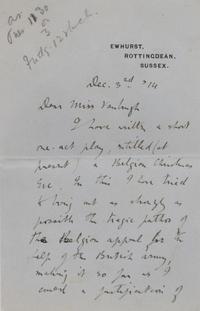 EWHURST,
ROTTINGDEAN,
SUSSEX.
Dec. 3rd '14
Dear Miss Vanbrugh
I have written a short
one-act play, entitled (at
present) a Belgian Christmas
Eve. In this I have tried
to bring out as strongly as
possible the tragic pathos of
the Belgian appeal for the
help of the British army,
making it so far as I
could a justification of